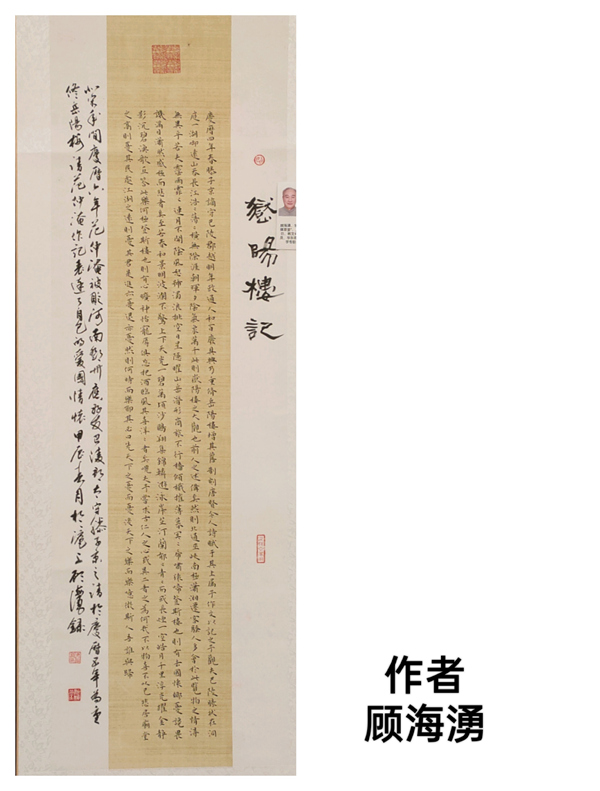 嶽陽樓記
慶曆四年春滕子京謫守巴陵郡越明年政通人和百廢具興乃重修岳陽樓增其舊制刻唐賢今人詩賦于其上屬予作文以記之予觀夫巴陵勝狀在洞
庭一湖銜遠山吞長江浩浩湯湯橫無際涯朝暉夕陰氣象萬千此則岳陽樓之大觀也前人之述備矣然則北通巫峽南極瀟湘遷客騷人多會於此覽物之情得
無異乎若夫霪雨霏霏連月不開陰風怒號濁浪排空日星隱曜山岳潛形商旅不行檣傾楫摧薄暮冥冥虎嘯猿啼登斯樓也則有去國懷鄉憂讒畏
譏滿目蕭然感極而悲者矣至若春和景明波瀾不驚上下天光一碧萬頃沙鷗翔集錦鱗游泳岸芷汀蘭郁郁青青而或長煙一空皓月千里浮光躍金靜
影沉璧漁歌互答此樂何極登斯樓也則有心曠神怡寵辱偕忘把酒臨風其喜洋洋者矣嗟夫予嘗求古仁人之心或異二者之為何哉不以物喜不以己悲居廟堂
之高則憂其民處江湖之遠則憂其君是進亦憂退亦憂然則何時而樂耶其必曰先天下之憂而憂後天下之樂而樂噫微斯人吾誰與歸
年間慶曆六年范仲淹被貶河南鄧州應好友巴陵郡太守滕子京之請於慶曆五年為重
修岳陽樓請范仲淹作記表達了自己的愛國情懷甲辰春月於滬上顧海湧錄
作者
顾海湧